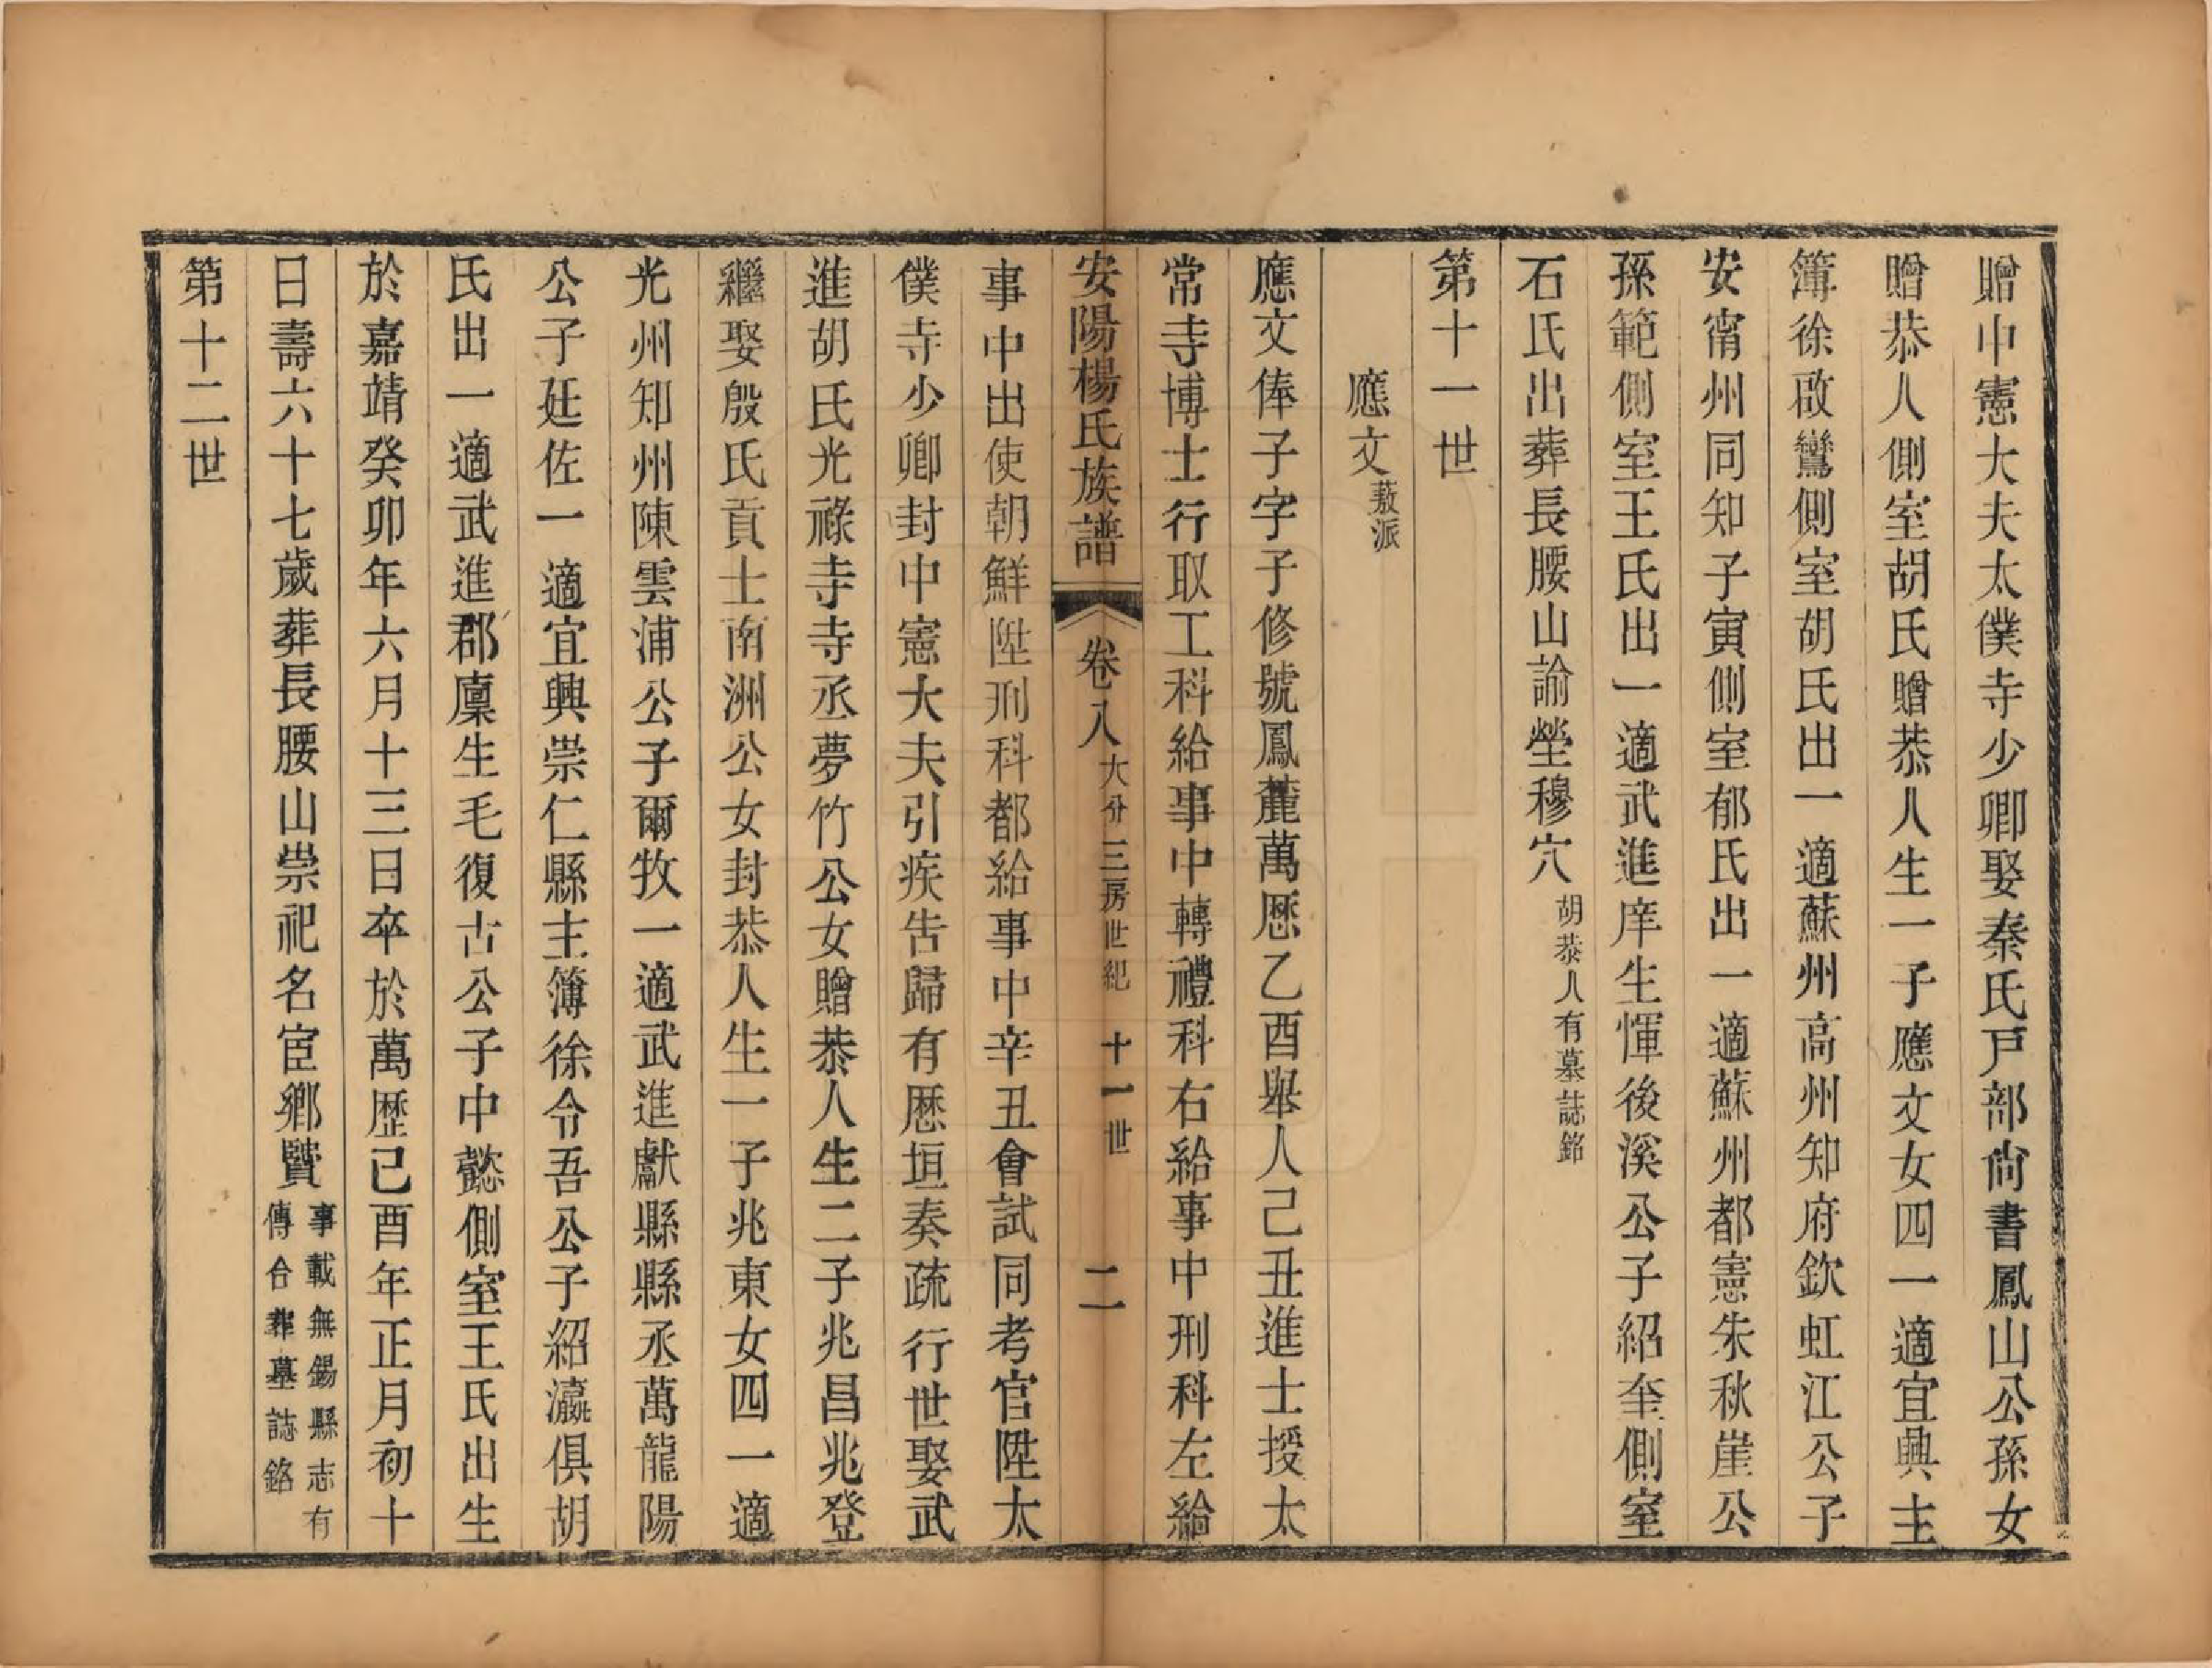 贈中憲大夫太僕寺少卿娶秦氏戸部尙書鳳山公孫女
贈恭人側室胡氏贈恭人生一子應文女四一適宜興主
簿徐啟鸞側室胡氏出一適蘇州高州知府欽虹江公子
安甯州同知子寅側室郁氏出一適蘇州都憲朱秋崖公
孫範側室王氏出一適武進庠生惲後溪公子紹奎側室
石氏出葬長腰山諭塋穆穴胡恭人有墓誌銘
第十一世
應文薮派
應文俸子字子修號鳳麓萬厯乙酉舉人己丑進士授太
常寺博士行取工科給事中轉禮科右給事中刑科左給
安陽楊氏族譜 卷八大分三房世紀 十一世 二
事中出使朝鮮陞刑科都給事中辛丑會試同考官陞太
僕寺少卿封中憲大夫引疾告歸有厯垣奏疏行世娶武
進胡氏光祿寺寺丞夢竹公女贈恭人生二子兆昌兆登
繼娶殷氏貢士南洲公女封恭人生一子兆東女四一適
光州知州陳雲浦公子爾牧一適武進獻縣縣丞萬龍陽
公子廷佐一適宜興崇仁縣主簿徐令吾公子紹瀛俱胡
氏出一適武進郡廩生毛復古公子中懿側室王氏出生
於嘉靖癸卯年六月十三日卒於萬歷己酉年正月初十
日壽六十七歲葬長腰山崇祀名宦鄉賢事載無錫縣志有
傳合葬墓誌銘
第十二世